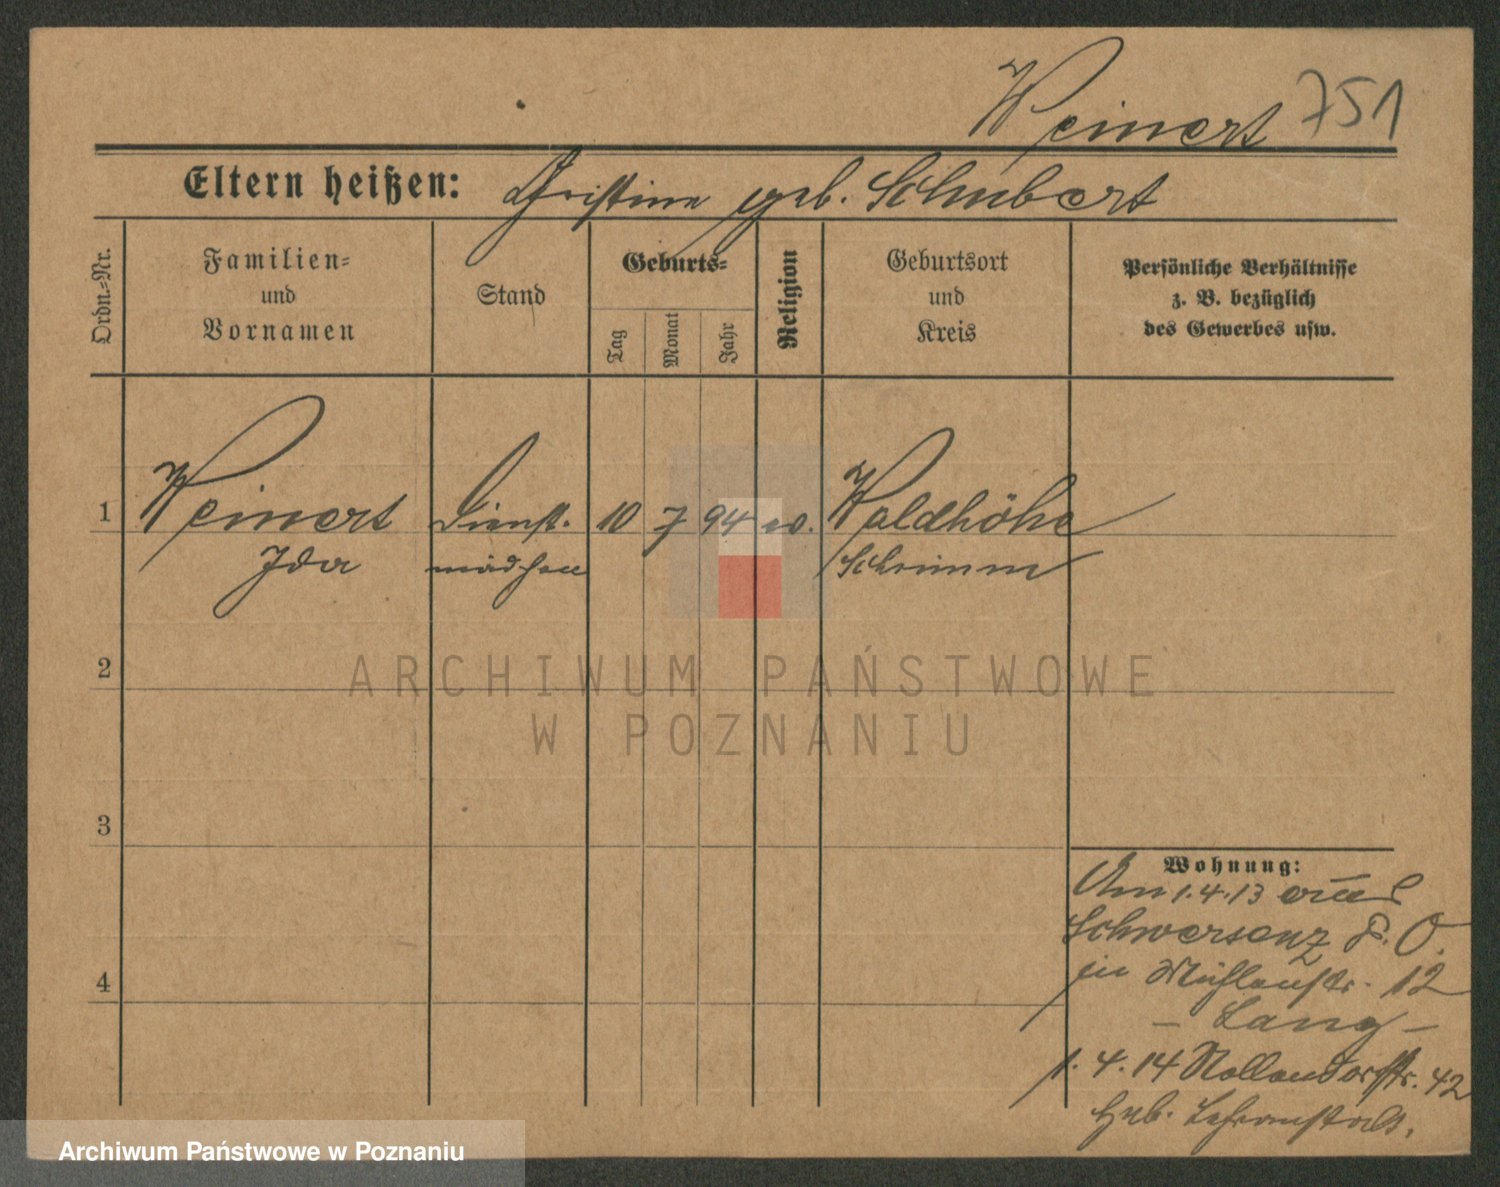 Weinert 751
Eltern heißen: Christine geb. Schubert
Ordn.-Nr.
Familien- und Vornamen
Stand
Geburts-
Tag
Monat
Jahr
Religion
Geburtsort und Kreis
Persönliche Verhältnisse
z. B. bezüglich
des Gewerbes usw.
1 Weinert Dienst- 10 7 94 ev. Waldhöhe
Ida mädchen Schrimm
2
3
4
Wohnung:
Am 1.4.13 aus
Schwersenz P. O.
in Mühlenstr. 12
- Lang -
1.4.14 Nollendorfstr. 42
Heb. Lehranstalt.
ARCHIWUM PAŃSTWOWE
W POZNANIU
Archiwum Państwowe w Poznaniu